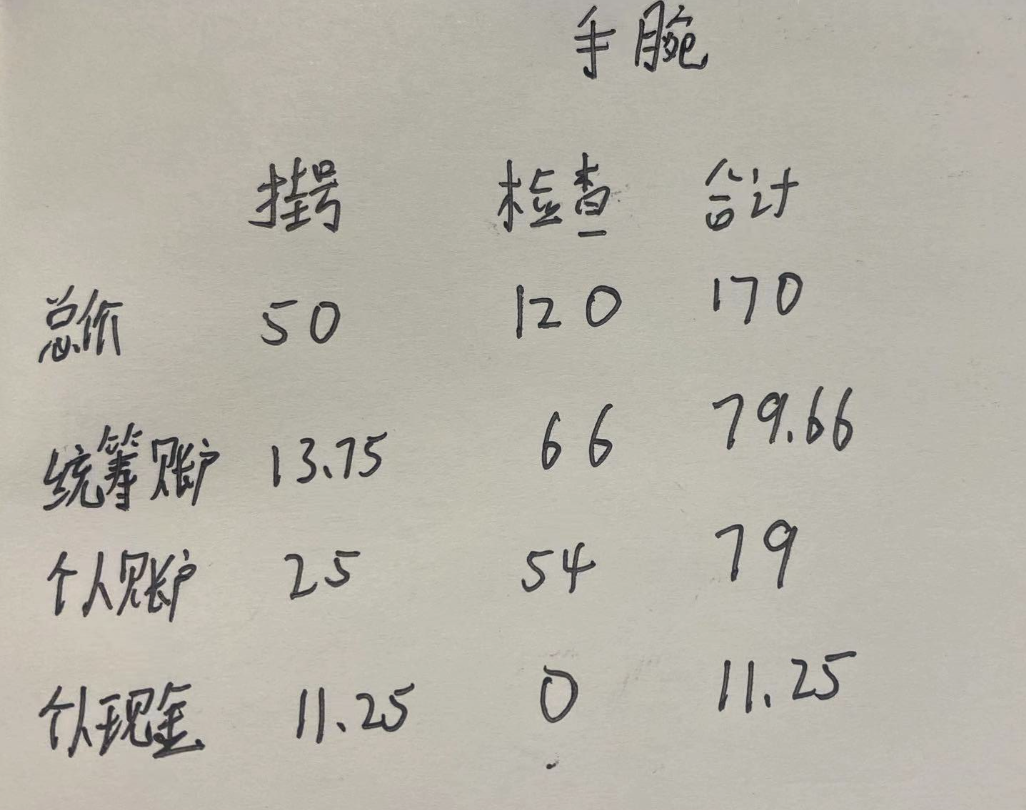 手腕
挂号 检查 合计
总价 50 120 170
统筹账户 13.75 66 79.66
个人账户 25 54 79
个人现金 11.25 0 11.25